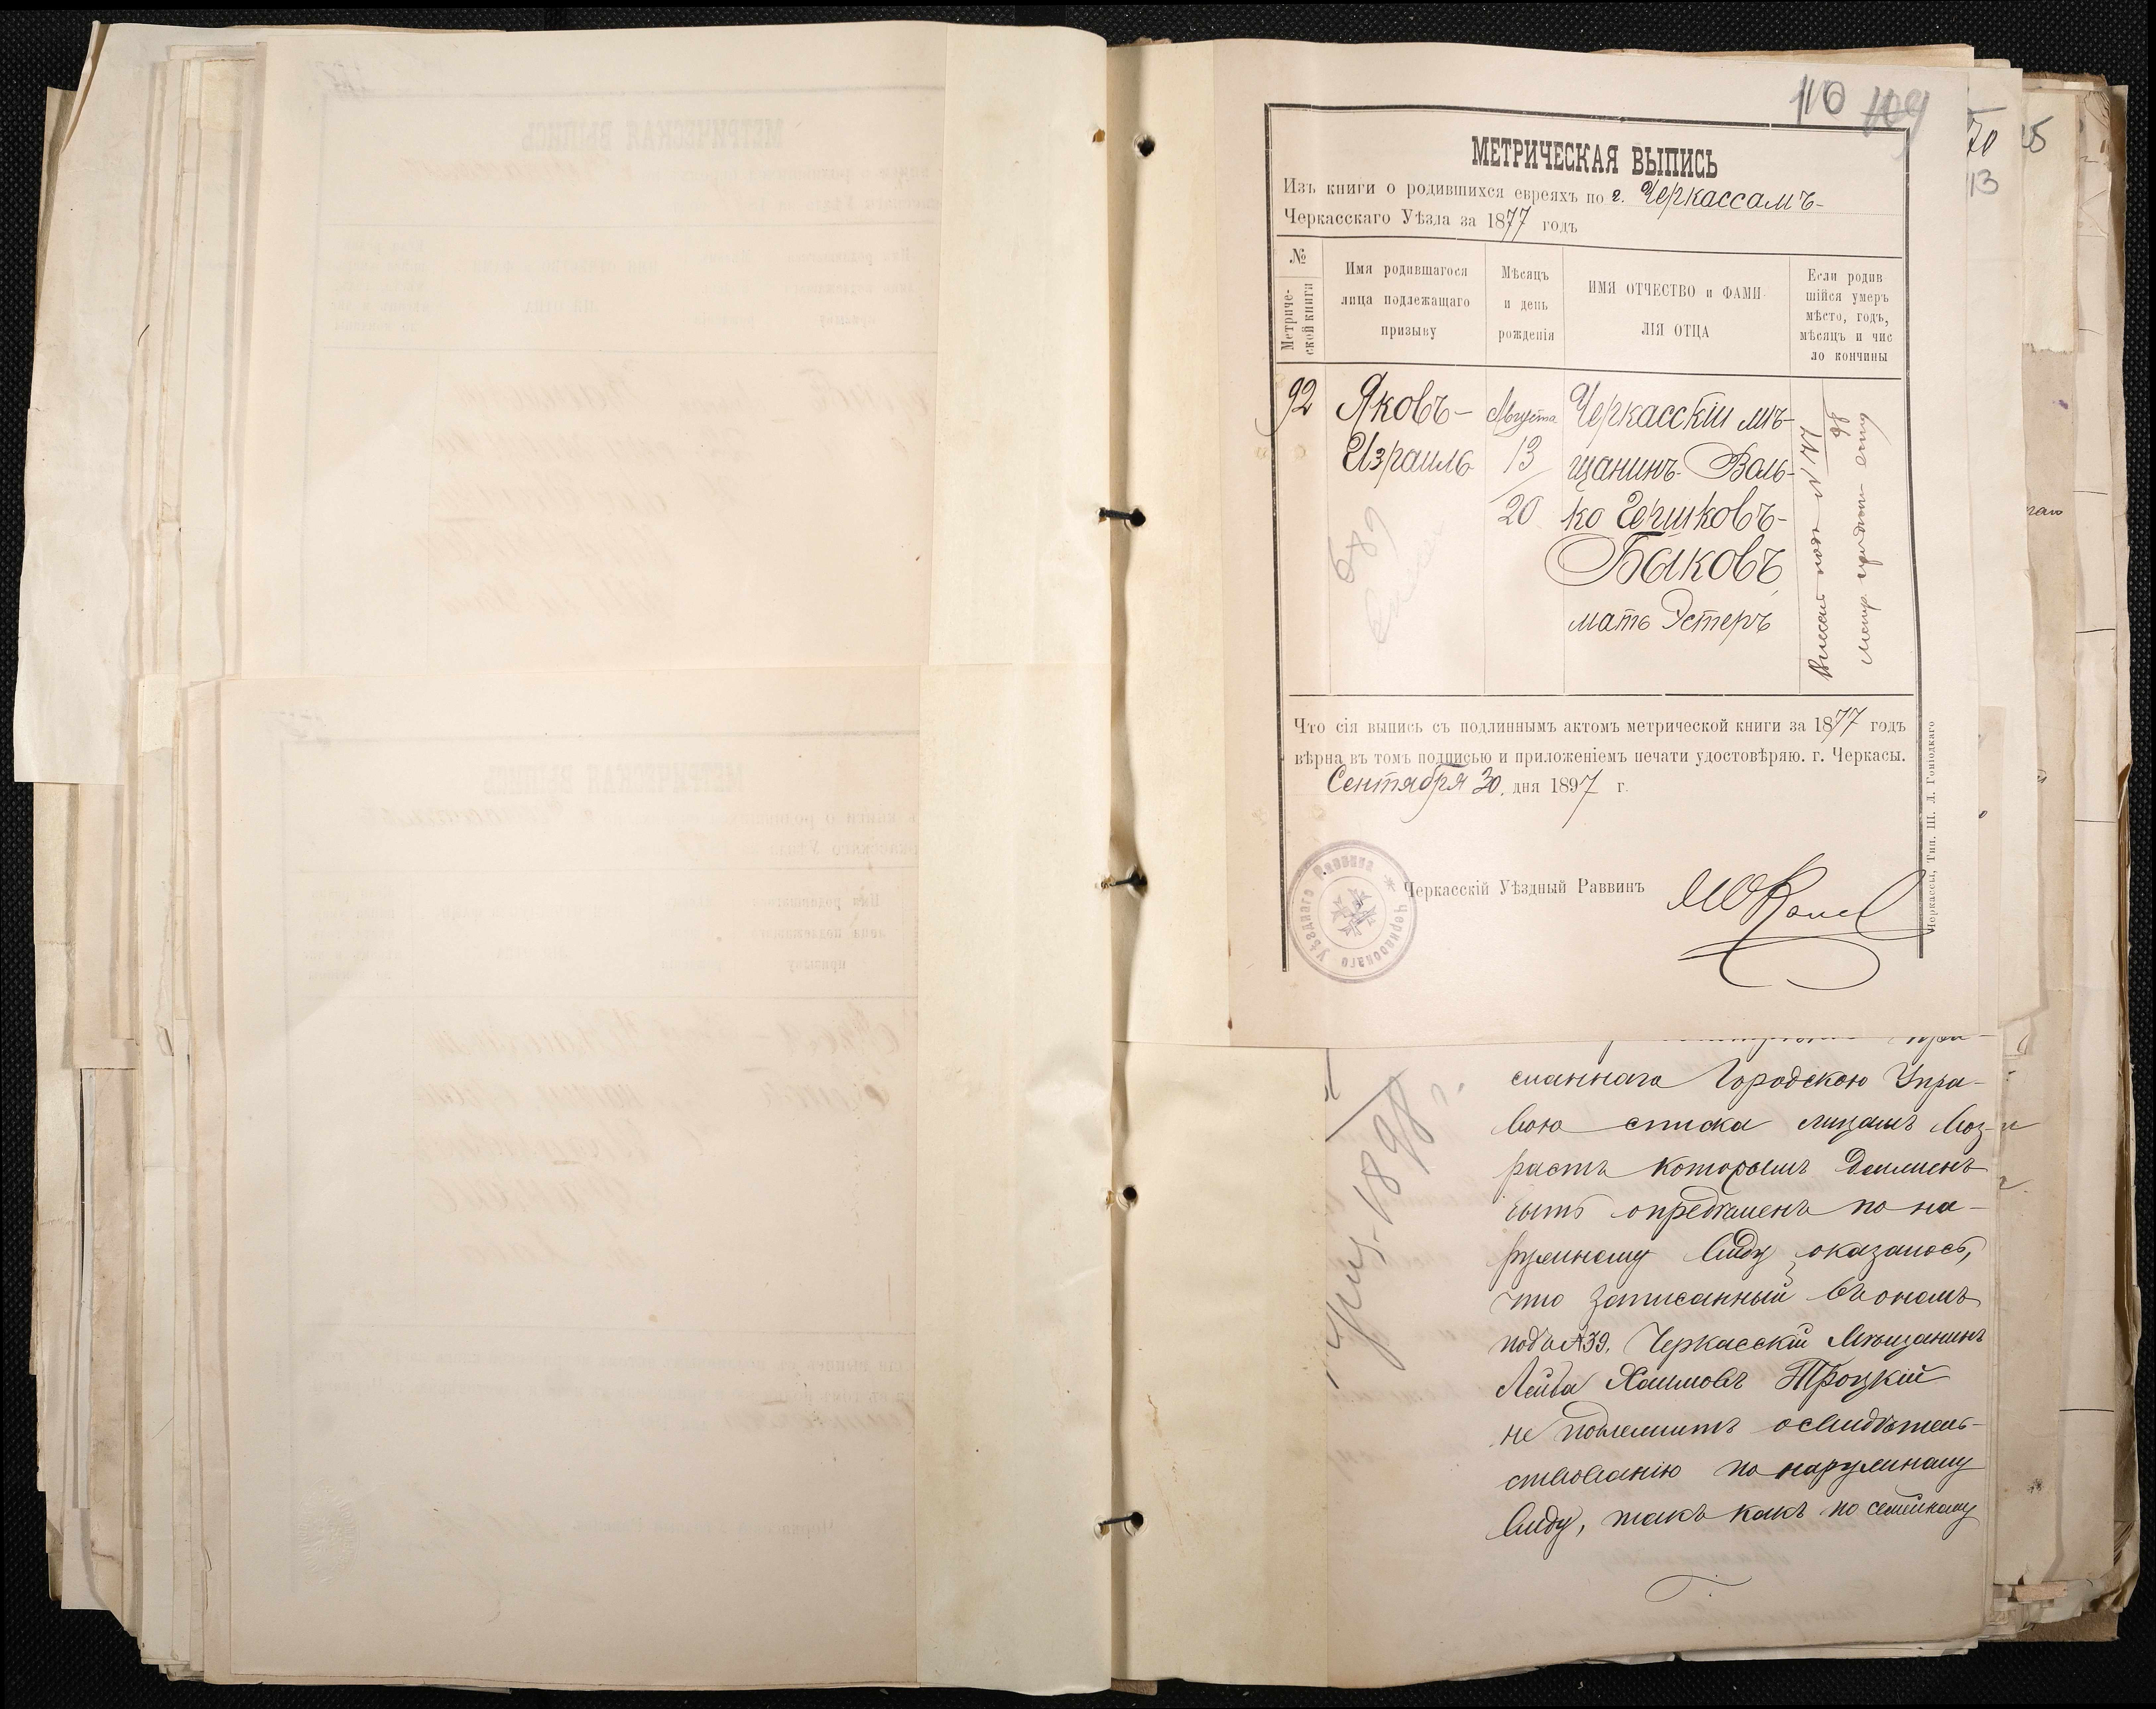 110 109
МЕТРИЧЕСКАЯ ВЫПИСЬ
Изъ книги о родившихся евреяхъ по г. Черкассамъ
Черкасскаго Уѣзда за 1877 годъ
№ Метриче-
ской книги
Имя родившагося
лица подлежащаго
призыву
Мѣсяцъ
и день
рожденія
ИМЯ ОТЧЕСТВО и ФАМИ-
ЛІЯ ОТЦА
Если родив
шійся умеръ
мѣсто, годъ,
мѣсяцъ и чис
ло кончины
92
Яковъ-
Израиль
Августа
13
20
Черкасскій мѣ-
щанинъ Воль-
ко Гершковъ-
Быковъ
мать Эстеръ
Что сія выпись съ подлиннымъ актомъ метрической книги за 1877 годъ
вѣрна въ томъ подписью и приложеніемъ печати удостовѣряю. г. Черкасы.
Сентября 30. дня 1897 г.
Черкасскій Уѣздный Раввинъ
Черкасскаго Уѣзднаго Раввина
Черкассы, Тип. Ш. Л.
70
13
сланнаго Городскою Упра-
вою списка лицамъ воз-
растъ которымъ долженъ
быть опредѣленъ по на-
ружному виду оказалось,
что записанный въ ономъ
подъ №39. Черкасскій Мѣщанинъ
Лейба Хаимовъ Троцкій
не подлежитъ освидѣтель-
ствованію по наружному
виду, такъ какъ по семейному
1898 г.